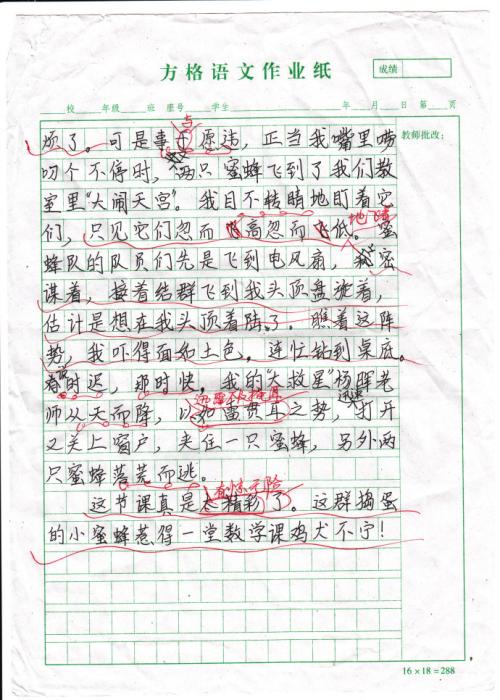 方格语文作业纸
成绩
校 年级 班 座号 学生 年 月 日 第 页
教师批改:
与
烦了。可是事于愿违,正当我嘴里唠
叨个不停时,两只蜜蜂飞到了我们教
室里“大闹天宫”。我目不转睛地盯着它
们,只见它们忽而飞高忽而飞低。蜜
蜂队的队员们先是飞到电风扇,密
谋着,接着结群飞到我头顶盘旋着,
估计是想在我头顶着陆了。瞧着这阵
势,我吓得面如土色,连忙钻到桌底。
说时迟,那时快,我的“大救星”杨晖老
迅雷不及掩耳
师从天而降,以如雷贯耳之势,迅速打开
又关上窗户,夹住一只蜜蜂,另外两
只蜜蜂落荒而逃。
有惊无险
这节课真是太精彩了。这群捣蛋
的小蜜蜂惹得一堂数学课鸡犬不宁!
16×18=288